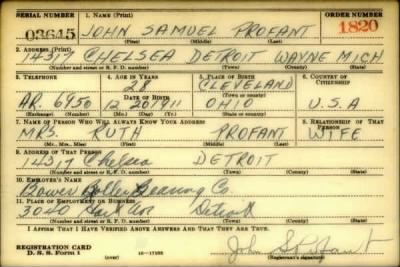 SERIAL NUMBER 1. NAME (Print) ORDER NUMBER
03645 JOHN SAMUEL PROFANT 1820
(First) (Middle) (Last)
2. ADDRESS (Print)
14317 CHELSEA DETROIT WAYNE MICH
(Number and street or R. F. D. number) (Town) (County) (State)
3. TELEPHONE 4. AGE IN YEARS 5. PLACE OF BIRTH 6. COUNTRY OF CITIZENSHIP
28 CLEVELAND
DATE OF BIRTH (Town or county)
AR. 6950 12 20 1911 OHIO U.S.A
(Exchange) (Number) (Mo.) (Day) (Yr.) (State or country)
7. NAME OF PERSON WHO WILL ALWAYS KNOW YOUR ADDRESS 8. RELATIONSHIP OF THAT PERSON
MRS. RUTH PROFANT WIFE
(Mr., Mrs., Miss) (First) (Middle) (Last)
9. ADDRESS OF THAT PERSON
14317 Chelsea DETROIT
(Number and street or R. F. D. number) (Town) (County) (State)
10. EMPLOYER'S NAME
Bower Roller Bearing Co.
11. PLACE OF EMPLOYMENT OR BUSINESS
3040 Detroit
(Number and street or R. F. D. number) (Town) (County) (State)
I AFFIRM THAT I HAVE VERIFIED ABOVE ANSWERS AND THAT THEY ARE TRUE.
REGISTRATION CARD
D. S. S. Form 1 (over) John S Profant
(Registrant's signature)